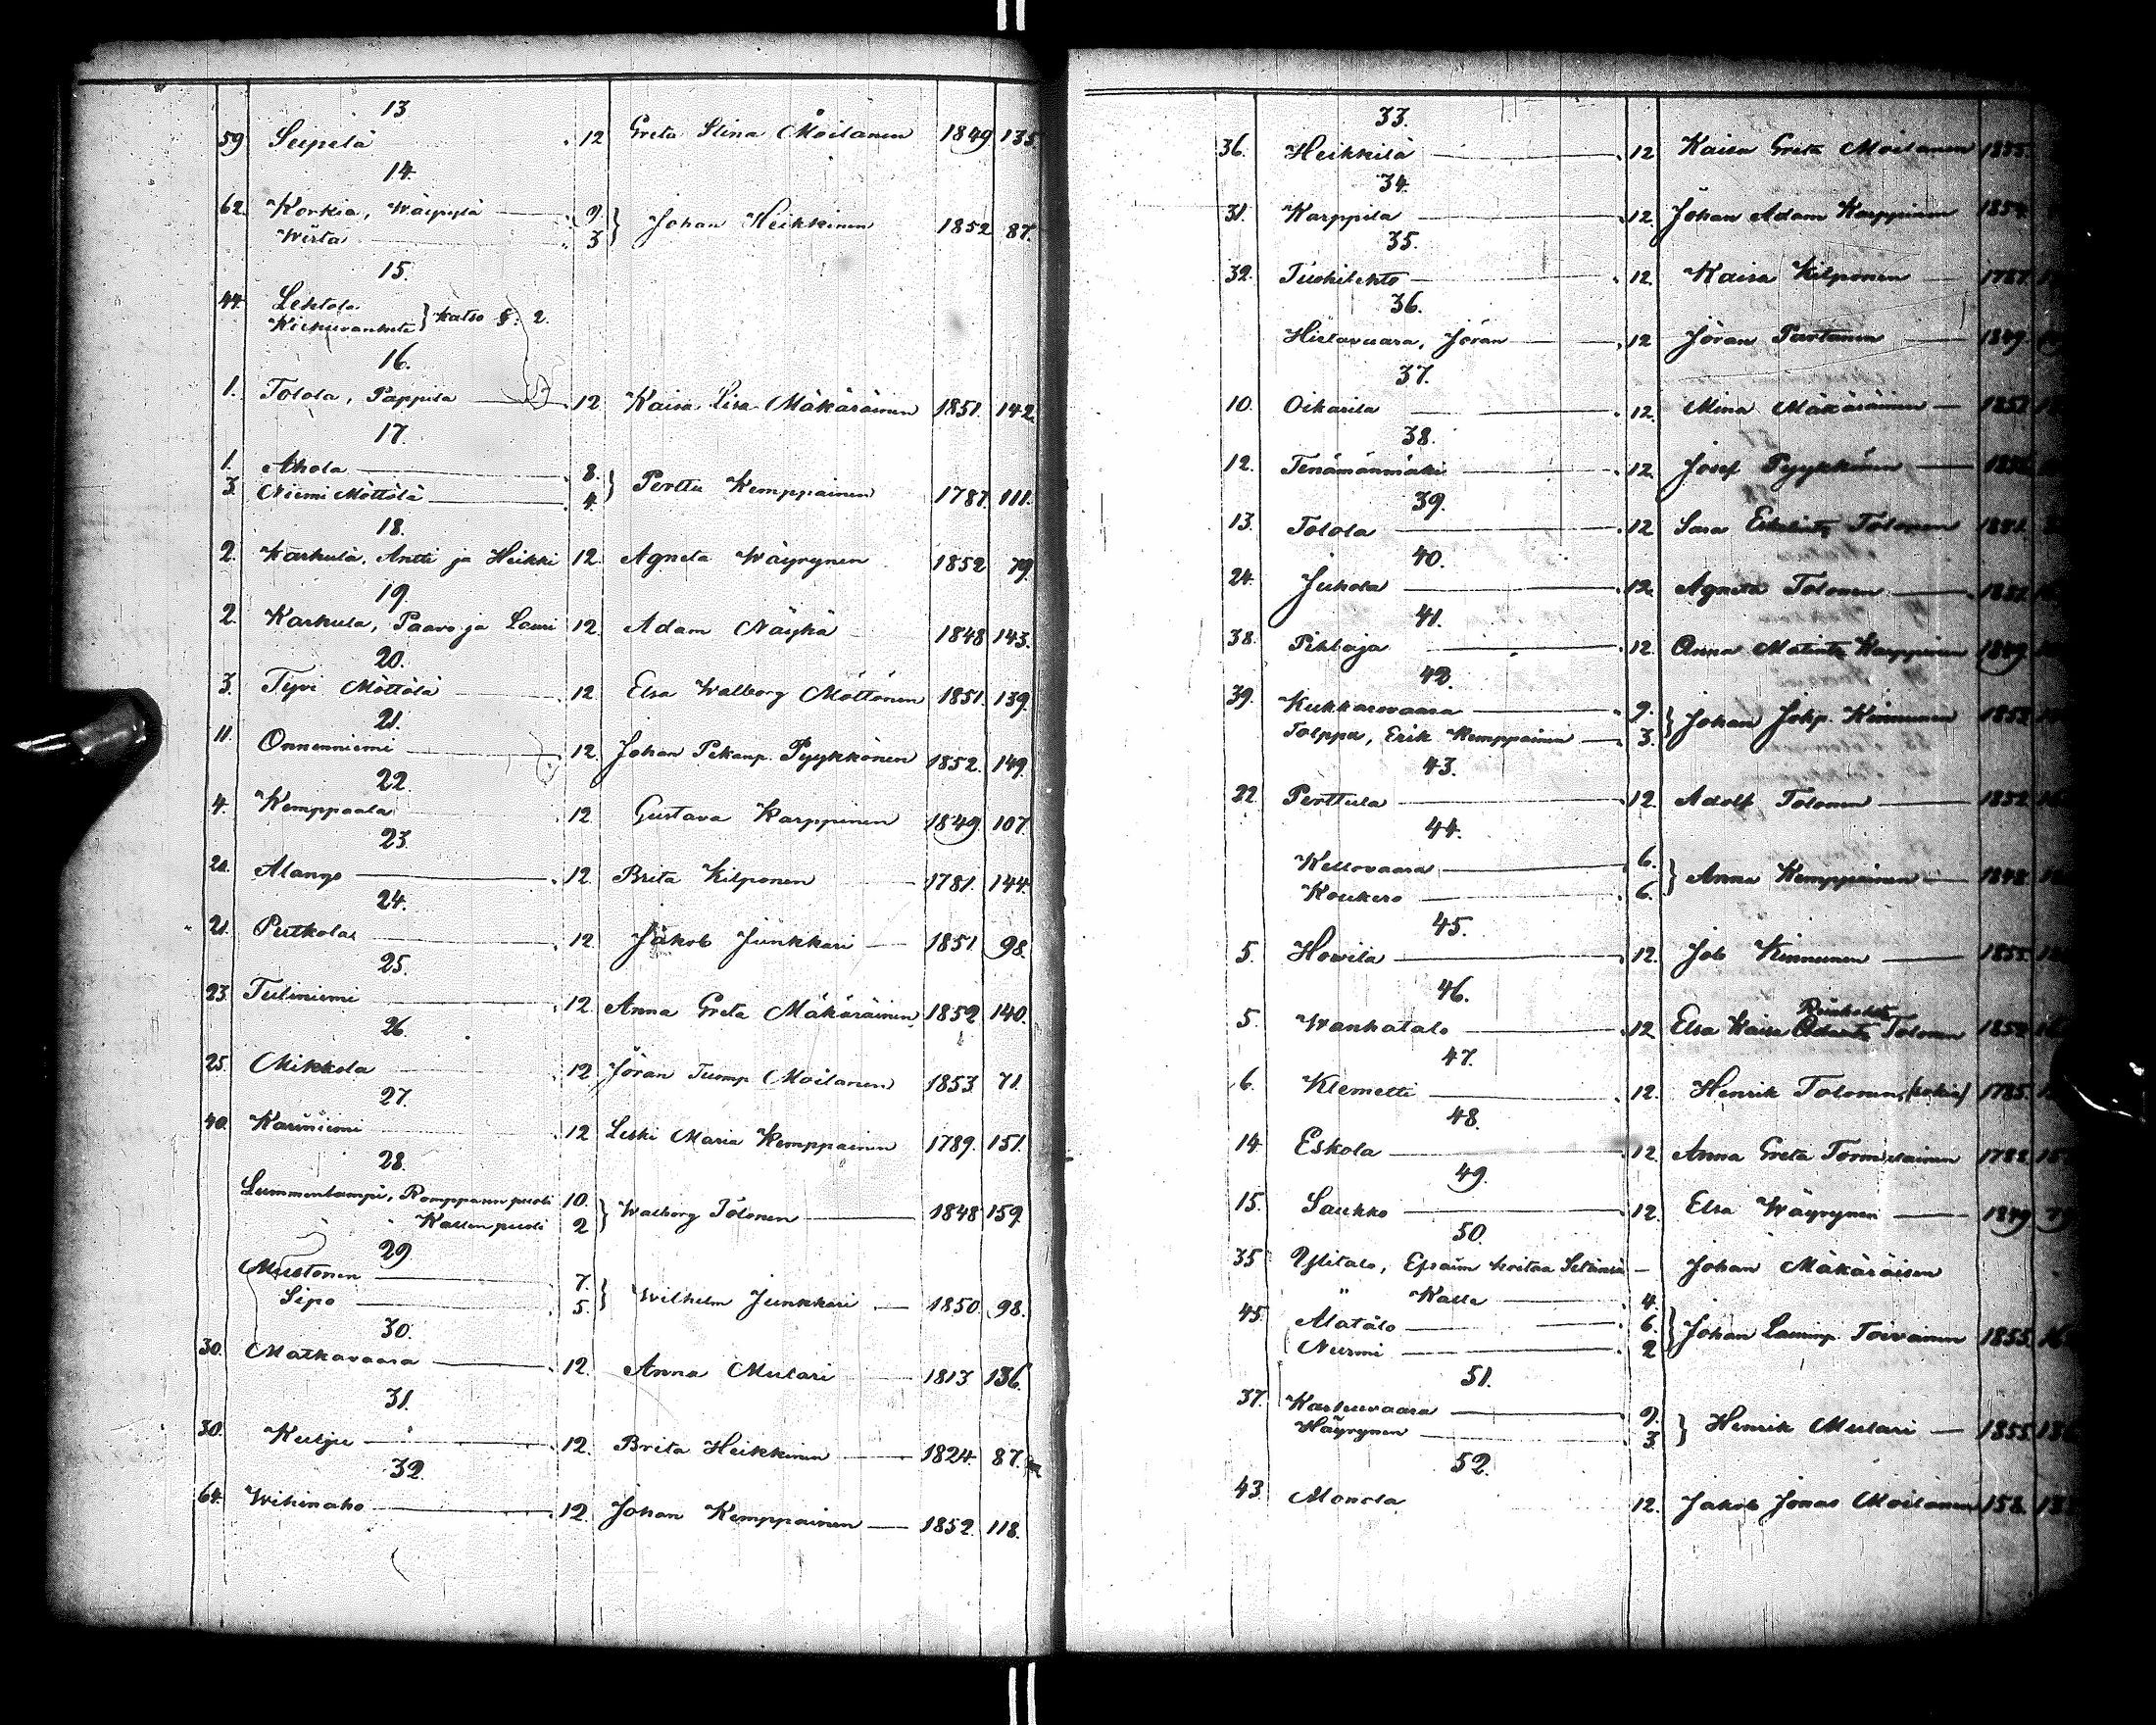 13
59 Seipelä 12 Greta Stina Moilanen 1849 135.
14.
62. Korkia, Wäypylä 9.
Wirta 3 } Johan Heikkinen 1852 87.
15.
44. Lehtola
} katso §. 2.
16.
1. Tolola, Pappila 12 Kaisa Lisa Mäkäräinen 1851. 142
17.
1. Ahola 8.
3. Niemi Möttölä 4. } Perttu Kemppainen 1787. 111.
18.
2. Karhula, Antti ja Heikki 12. Agneta Wäyrynen 1852 79.
19.
2. Karhula, Paavo ja Lauri 12. Adam Näykä 1848 143.
20.
3. Tyvi Möttölä 12. Elsa Walborg Möttönen 1851. 139.
21.
11. Onnenniemi 12. Johan Pekanp. Pyykkönen 1852. 149.
22.
4. Kemppaala 12. Gustava Karppinen 1849. 107.
23.
20. Alango 12. Brita Kilponen 1781. 144.
24.
21. Putkola 12. Jakob Junkkari 1851 98.
25.
23. Tuliniemi 12. Anna Greta Mäkäräinen 1852 140.
26.
25. Mikkola 12. Jöran Tuomp. Moilanen 1853. 71.
27.
40. Kariniemi 12 Leski Maria Kemppainen 1789. 151.
28.
Lummenlampi, Romppasen puoli 10.
Kallen puoli 2 } Walborg Tolonen 1848 159.
29.
Mustonen 7.
Sipo 5. } Wilhelm Junkkari 1850. 98.
30.
30. Matkavaara 12. Anna Mulari 1813 136.
31.
30. Kulju 12. Brita Heikkinen 1824. 87.
32.
64. Wihinaho 12 Johan Kemppainen 1852. 118.
33.
36. Heikkilä 12 Kaisa Greta Moilanen 1855.
34.
31. Karppila 12. Johan Adam Karppinen 1854.
35.
32. Tuohilehto 12. Kaisa Kilponen 1767.
36.
Hietavaara, Jöran 12 Jöran Partanen 1849.
37.
10. Oikarila 12. Mina Mäkäräinen
38.
12. Tenämänmäki 12. Josef Pyykkönen
39.
13. Tolola 12 Sara Tolonen
40.
24. Juhola 12. Agneta Tolonen
41.
38. Pihlaja 12. Anna Karppinen 1849.
42.
39. Kukkarovaara 9.
Tolppa, Erik Kemppainen 3. } Johan Johp. Kinnunen
43.
22. Perttula 12. Adolf Tolonen 1852.
44.
Kellovaara 6.
Koukero 6. } Anna Kemppainen 1848.
45.
5. Hovila 12. Job Kinnunen 1855.
46.
5. Wanhatalo 12 Elsa Kaisa Tolonen 1852
47.
6. Klemetti 12. Henrik Tolonen, (sokia) 1785.
48.
14. Eskola 12. Anna Greta Tormulainen 1782.
49.
15. Saukko 12. Elsa Wäyrynen 1849
50.
35 Ylitalo, Efraim hoitaa Setänsä — Johan Mäkäräisen
" Kalle 4.
45. Alatalo 6.
Nurmi 2 } Johan Laurinp. Toivainen 1855.
51.
37. Karhuvaara 9.
Häyrynen 3. } Henrik Mulari 1855.
52.
43. Monola 12. Jakob Jonas Moilanen